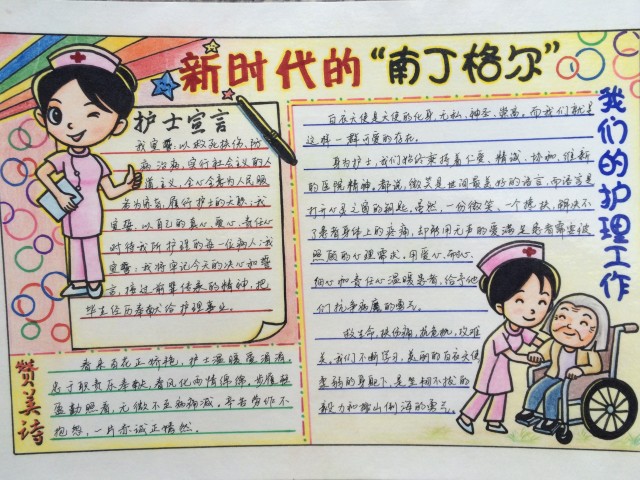 新时代的“南丁格尔”
护士宣言
我宣誓:以救死扶伤、防
病治病,实行社会主义的人
道主义,全心全意为人民服
务为宗旨,履行护士的天职;我
宣誓:以自己的真心、爱心、责任心
对待我所护理的每一位病人;我
宣誓:我将牢记今天的决心和誓
言,接过前辈传承的精神,把
毕生经历奉献给护理事业。
赞美诗
春来百花正娇艳,护士温暖爱滴滴。
忠于职责乐奉献,春风化雨情绵绵。
勤照者,无微不至
怨,一片赤诚正情燃。
我们的护理工作
白衣天使是天使的化身,无私、神圣、崇高,而我们就是
这样一群可爱的存在。
身为护士,我们始终秉持着仁爱、精诚、协和、维新
的医院精神,都说,微笑是世间最美好的语言,而语言是
打开心灵之窗的钥匙,虽然,一份微笑、一个搀扶,解决不
了患者身体上的疼痛,却能用无声的爱满足患者需要被
照顾的心理需求,用爱心、耐心、
细心和责任心温暖患者,给予他
们抗争病魔的勇气。
救生命,扶伤痛,抗危机,攻难
关,我们不断学习,美丽的白衣天使
柔弱的身躯下,是坚韧不拔的
毅力和排山倒海的勇气。